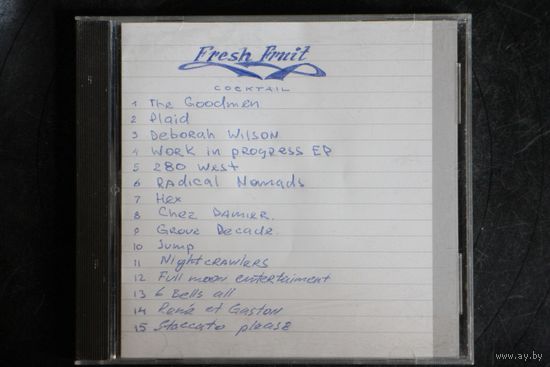 Fresh Fruit
COCKTAIL
1 The Goodmen
2 Plaid
3 Deborah Wilson
4 Work in progress EP
5 280 West
6 Radical Nomads
7 Hex
8 Chez Damier.
9 Grove Decade.
10 Jump
11 Nightcrawlers
12 Full moon entertaiment
13 6 Bells all
14 René et Gaston
15 Staccato please
www.ay.by